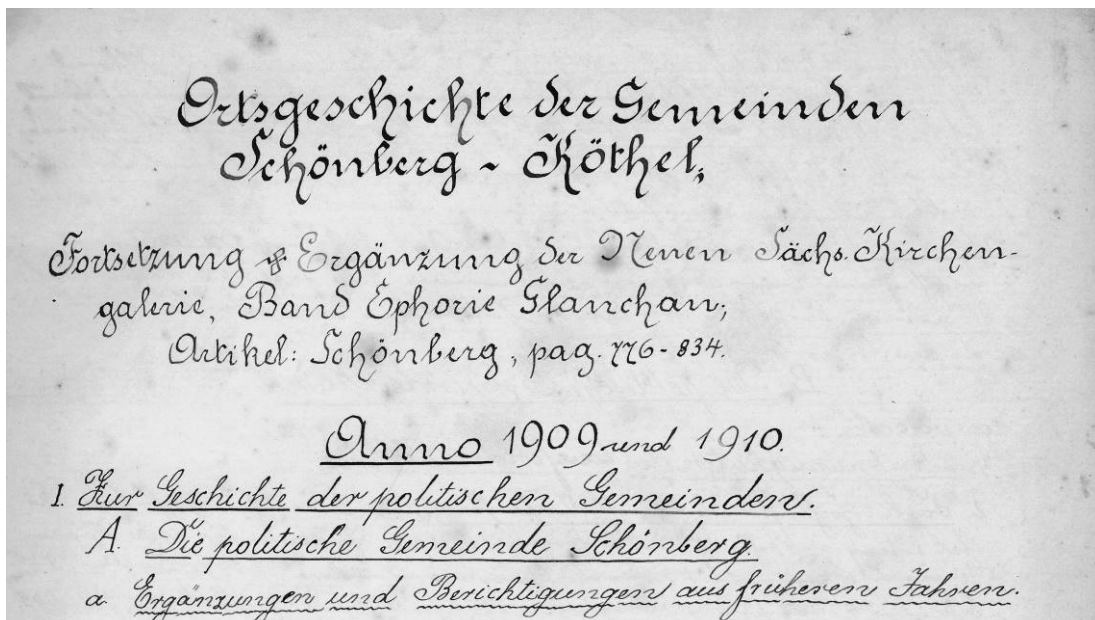 Ortsgeschichte der Gemeinden
Schönberg - Köthel;
Fortsetzung & Ergänzung der Neuen Sächs. Kirchen-
galerie, Band Ephorie Glauchau;
Artikel: Schönberg, pag. 776-834.
Anno 1909 und 1910.
1. Zur Geschichte der politischen Gemeinden.
A. Die politische Gemeinde Schönberg.
a. Ergänzungen und Berichtigungen aus früheren Jahren.